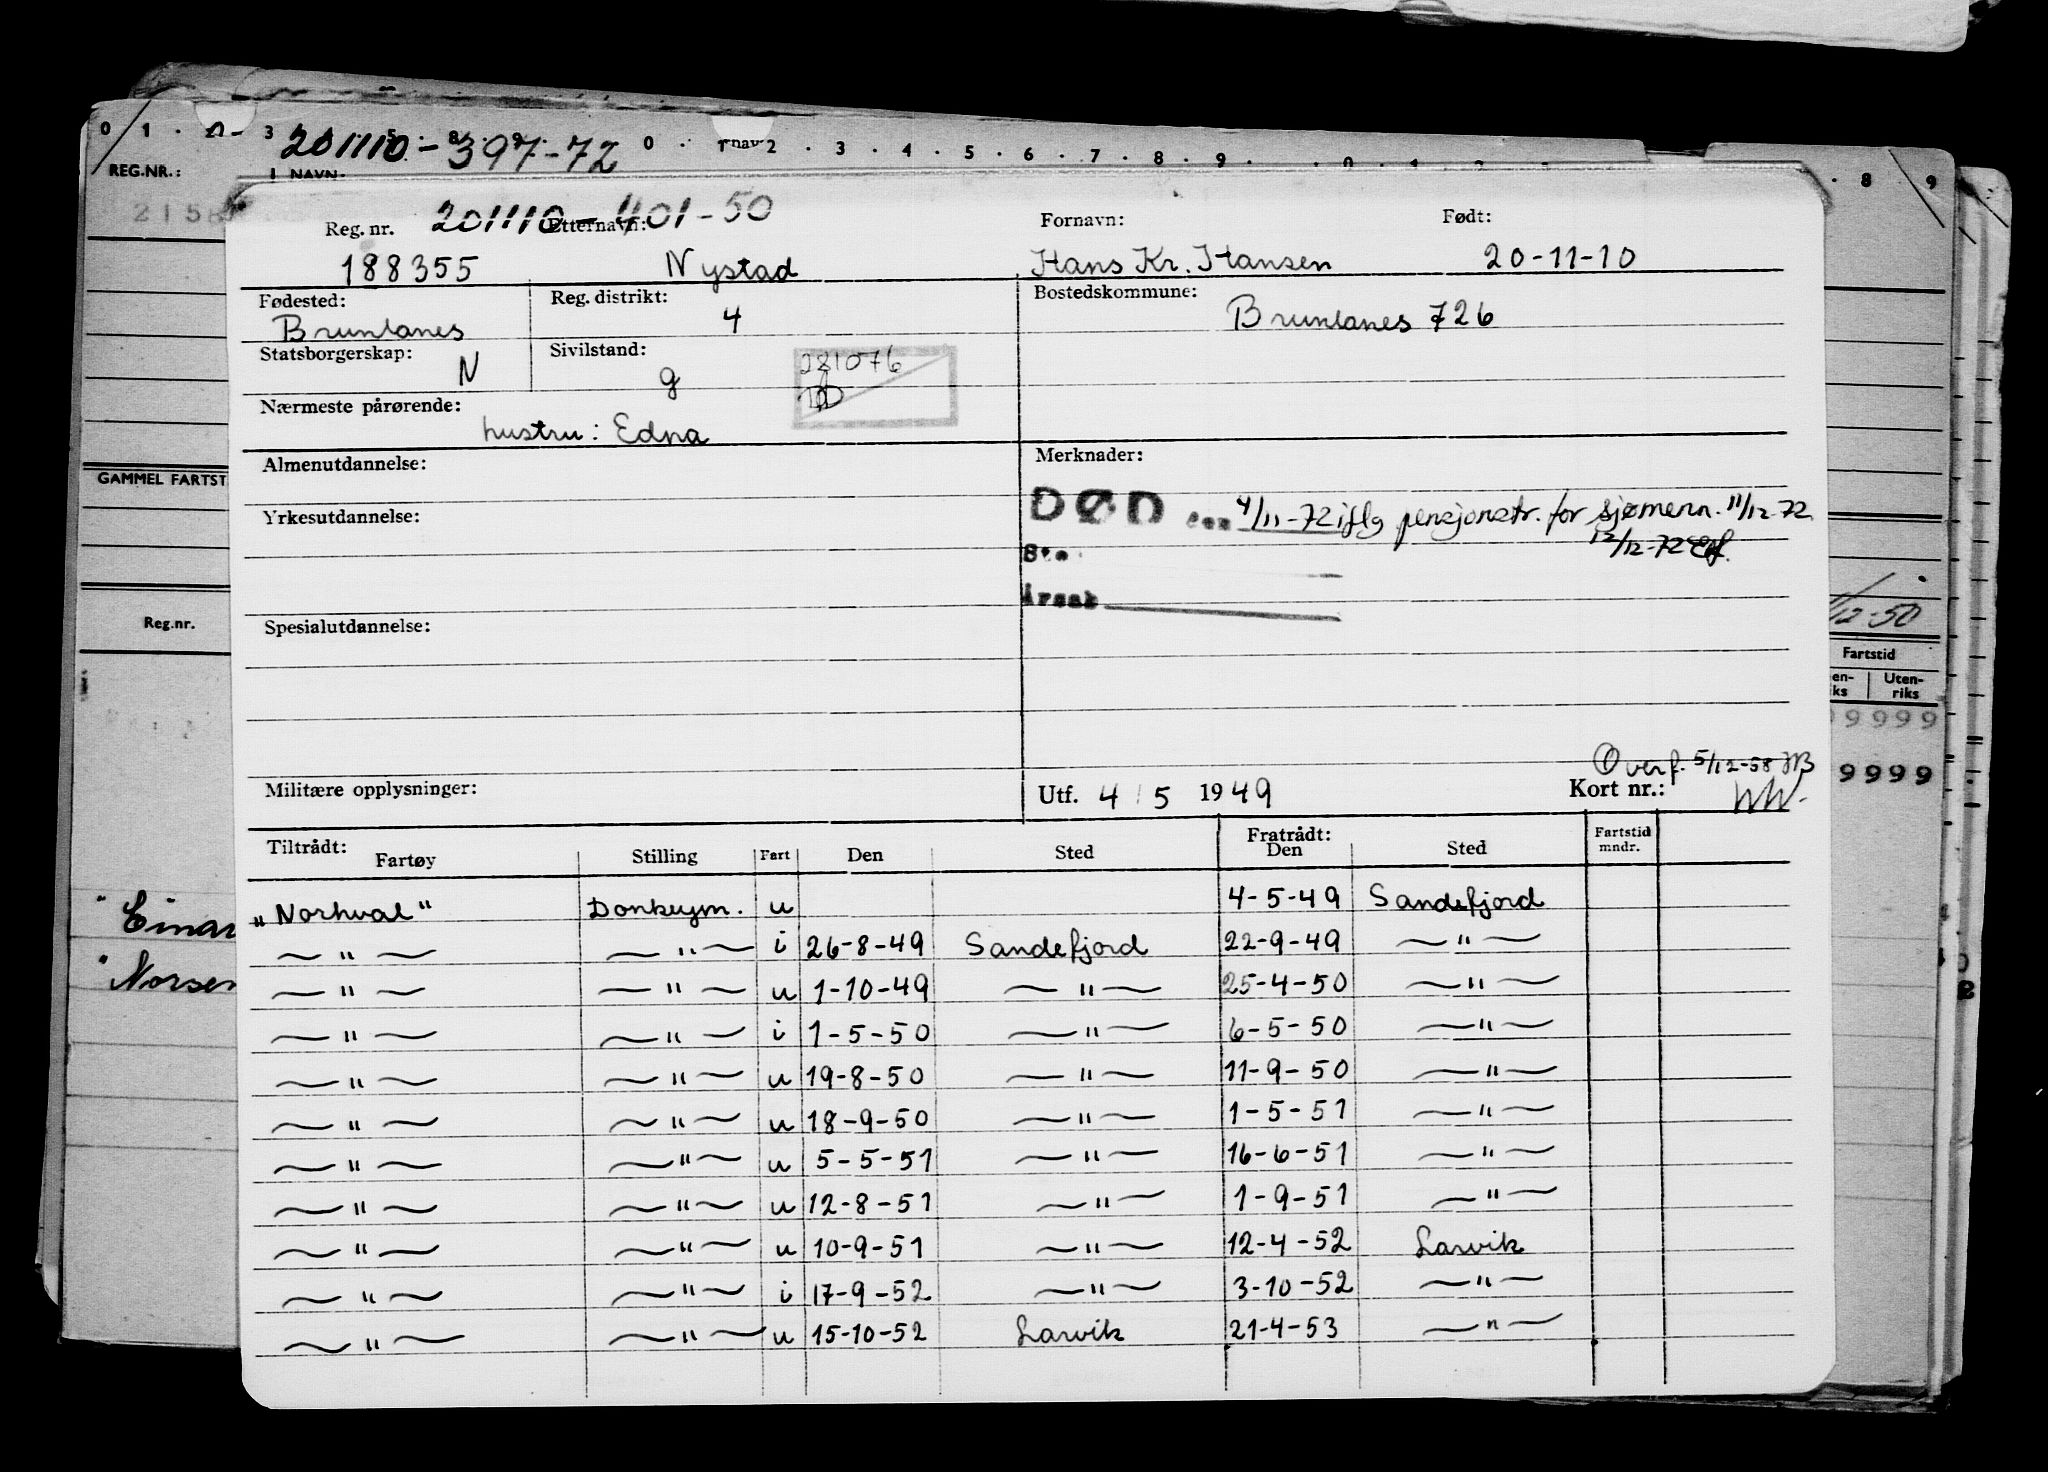 0 1 . 2 . 3 . 5 . 8 . 9 . 0 . 1 . 2 . 3 . 4 . 5 . 6 . 7 . 8 . 9 . . 0 1 2 3 . 8 9
201110-397-72
REG.NR.: NAVN:
2158
Reg. nr. 201110-401-50 Etternavn: Fornavn: Født:
188355 Nystad Hans Kr. Hansen 20-11-10
Fødested: Reg. distrikt: Bostedskommune:
Brunlanes 4 Brunlanes 726
Statsborgerskap: Sivilstand:
N g 281076
Nærmeste pårørende:
hustru: Edna
Almenutdannelse: Merknader:
GAMMEL FARTST
DØD den 4/11-72 iflg pensjonstr. for sjømenn. 11/12-72
Yrkesutdannelse: 12/12-72
Sted
Årsak
Reg.nr. /12-50
Spesialutdannelse:
Fartstid
en- Uten-
ks riks
9999
Overf. 5/12-58
9999
Militære opplysninger: Utf. 4/5 1949 Kort nr.:
Tiltrådt: Fratrådt: Fartstid
Fartøy Stilling Fart Den Sted Den Sted mndr.
"Norhval" Donkeym. u 4-5-49 Sandefjord
" Einar
—"— —"— i 26-8-49 Sandefjord 22-9-49 —"—
" Norsen
—"— —"— u 1-10-49 —"— 25-4-50 —"—
—"— —"— i 1-5-50 —"— 6-5-50 —"—
—"— —"— u 19-8-50 —"— 11-9-50 —"—
—"— —"— u 18-9-50 —"— 1-5-51 —"—
—"— —"— u 5-5-51 —"— 16-6-51 —"—
—"— —"— u 12-8-51 —"— 1-9-51 —"—
—"— —"— u 10-9-51 —"— 12-4-52 Larvik
—"— —"— i 17-9-52 —"— 3-10-52 —"—
—"— —"— u 15-10-52 Larvik 21-4-53 —"—